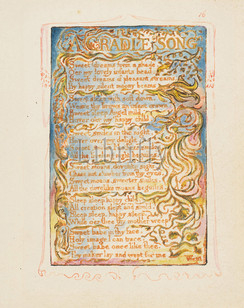 A CRADLE SONG
Sweet dreams form a shade
O'er my lovely infants head
Sweet dreams of pleasant streams
By happy silent moony beams
Sweet sleep with soft down
Weave thy brows an infant crown
Sweet sleep Angel mild
Hover o'er my happy child
Sweet smiles in the night
Hover over my delight
Sweet moans, dovelike sighs
Chase not slumber from thy eyes
Sweet moans, sweeter smiles
All the dovelike moans beguiles
Sleep sleep happy child
All creation slept and smil'd
Sleep sleep, happy sleep
While o'er thee thy mother weep
Sweet babe in thy face
Holy image I can trace
Sweet babe once like thee
Thy maker lay and wept for me